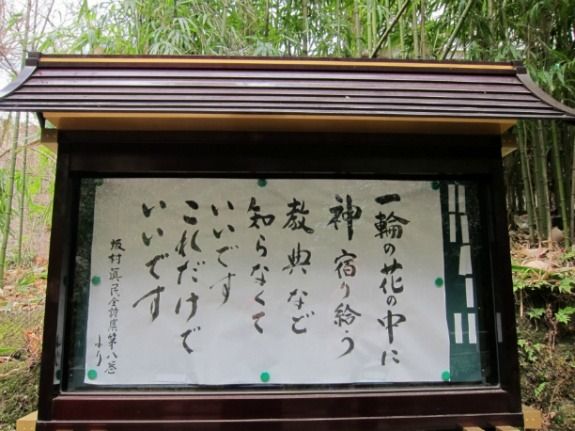 一輪の花の中に
神宿り給う
教典など
知らなくて
いいです
これだけで
いいです
坂村真民全詩集第八巻
より